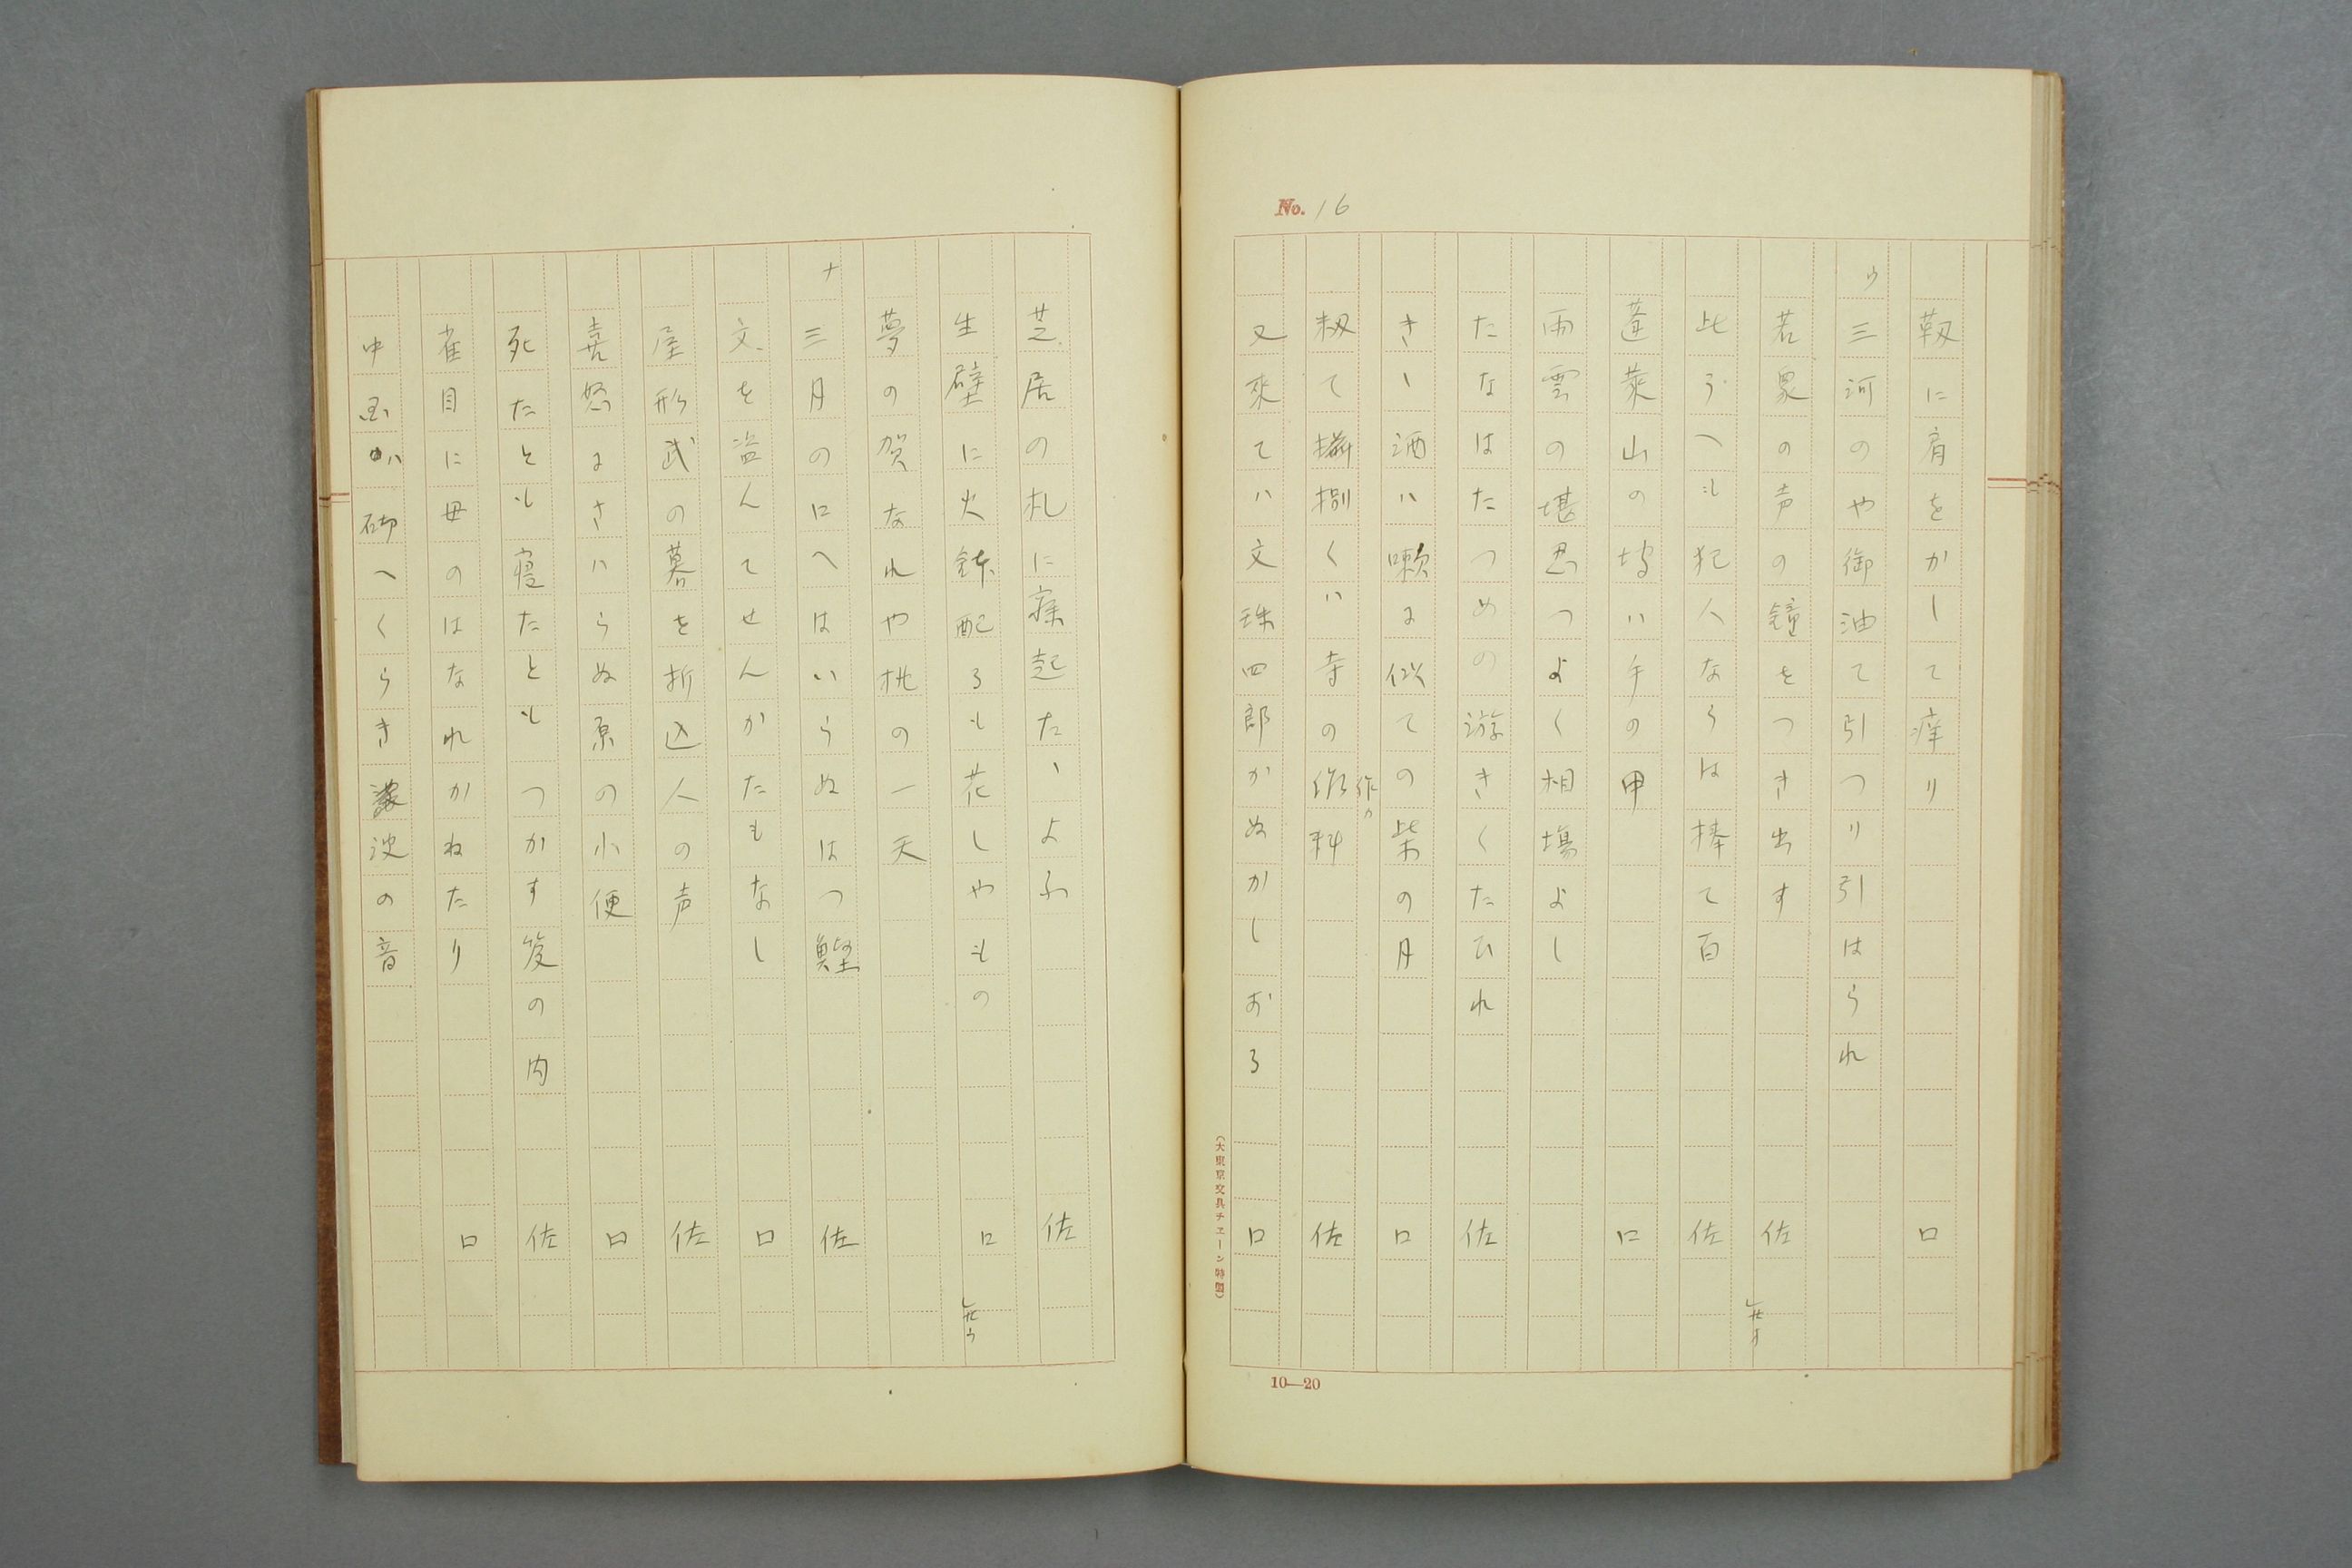 No. 16
靫に肩をかして痒り 口
ゥ 三河のや御油て引つり引はられ
若衆の声の鐘をつき出す 佐
此うへも犯人ならは棒て百 佐
蓬萊山の坊ハ手の甲 口
雨雲の堪忍つよく相塲よし
たなはたつめの遊きくたひれ 佐
きゝ酒ハ嗽に似ての柴の月 口
籾て摂捌くハ寺の作料 佐
作カ
又來てハ文珠四郎かぬかしおる 口
(大東京文具チエーン特製)
10—20
芝居の札に寐起たゝよふ 佐
生壁に火鉢配るも花しやもの 口
夢の賀なれや桃の一天
ナ 三月のにへはいらぬはつ鰹 佐
文を盗んてせんかたもなし 口
屋形武の暮を折込人の声 佐
喜怒にさハらぬ原の小便 口
死たとも寝たともつかす筏の内 佐
雀目に毋のはなれかねたり 口
中国か砌へくらき波の音